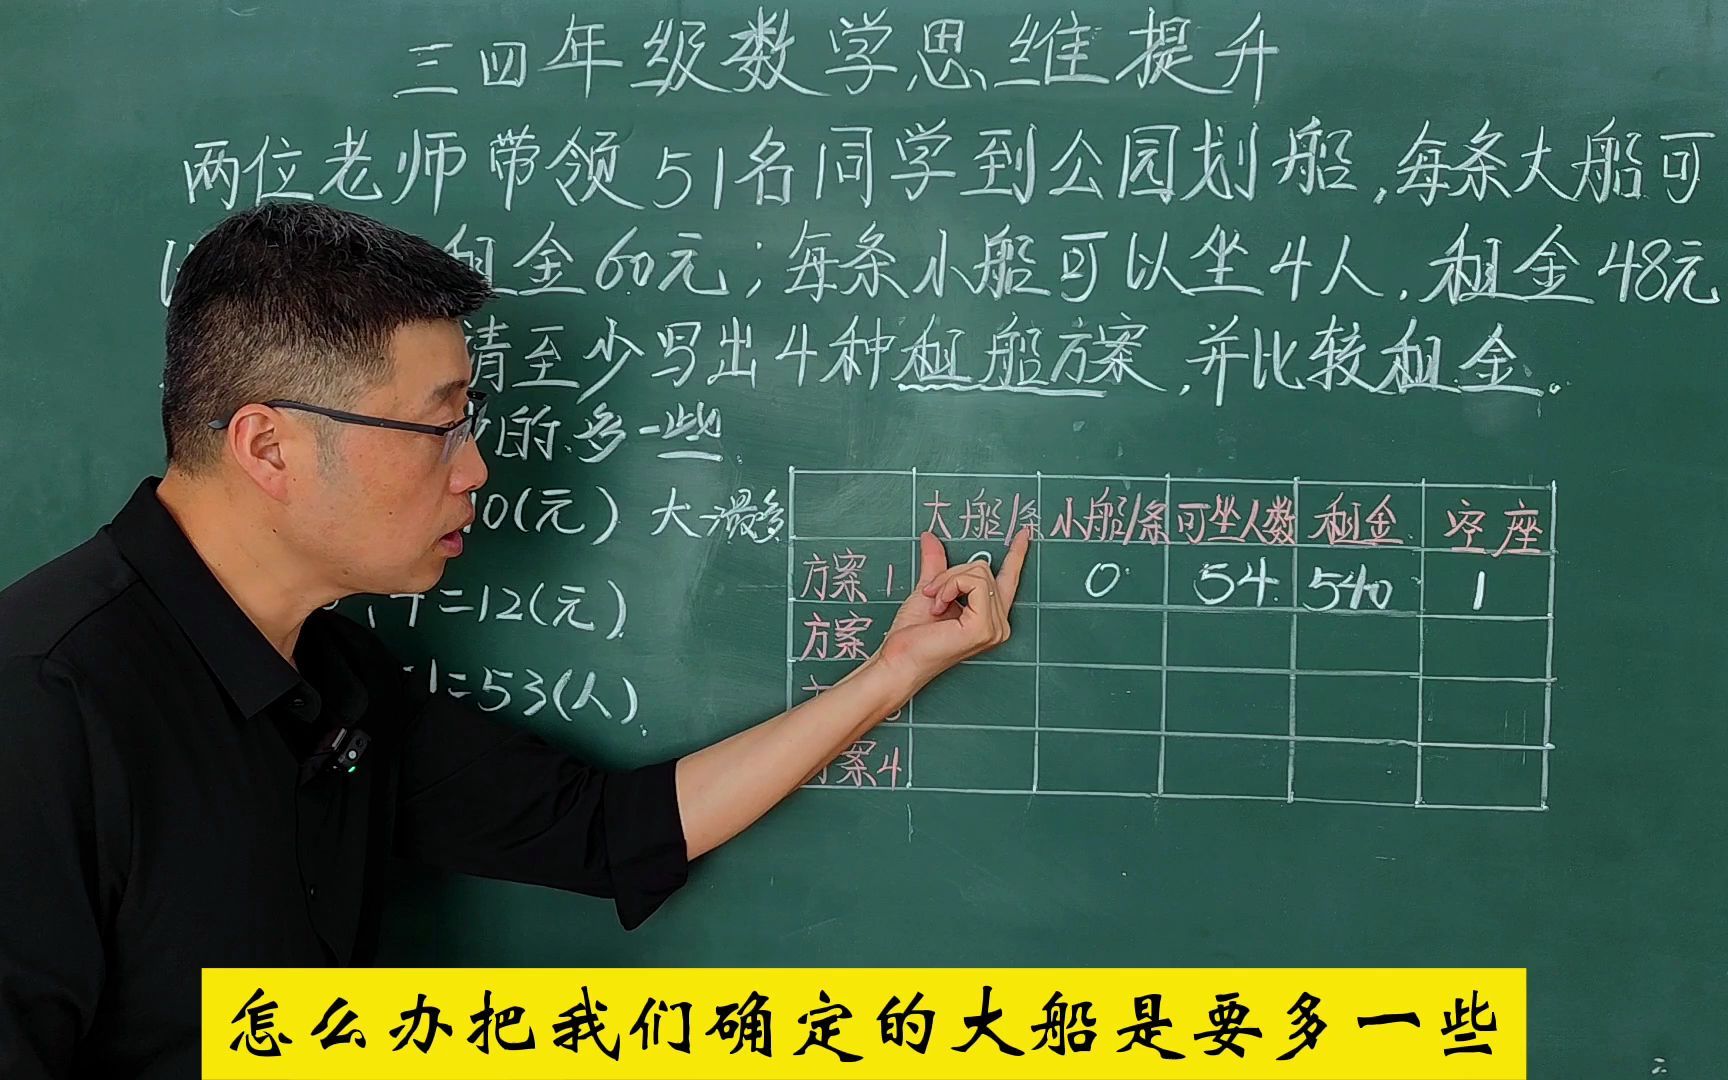 三四年级数学思维提升
两位老师带领51名同学到公园划船,每条大船可
租金60元;每条小船可以坐4人,租金48元
请至少写出4种租船方案,并比较租金。
的多一些
10(元) 大→最多
4=12(元)
1=53(人)
大船/条 小船/条 可坐人数 租金 空座
方案1 0 54 540 1
方案
案4
怎么办把我们确定的大船是要多一些